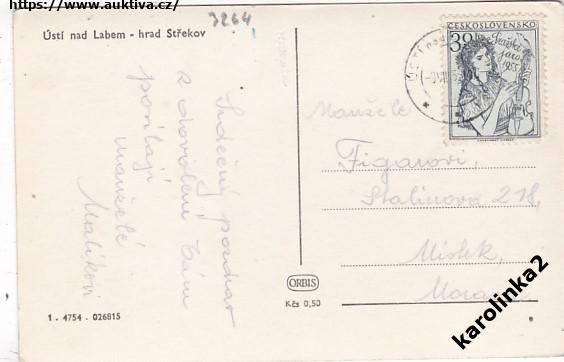 https://www.auktiva.cz/
3264
Ústí nad Labem - hrad Střekov
ČESKOSLOVENSKO
30 h
Pražské
jaro
1955
Srdečný pozdrav
z dovolení Vám
posílají
manželé
Malíkovi
Manželé
Figarovi,
Stalinova 218,
Místek,
ORBIS
Kčs 0,50
1 - 4754 - 026815
karolinka2